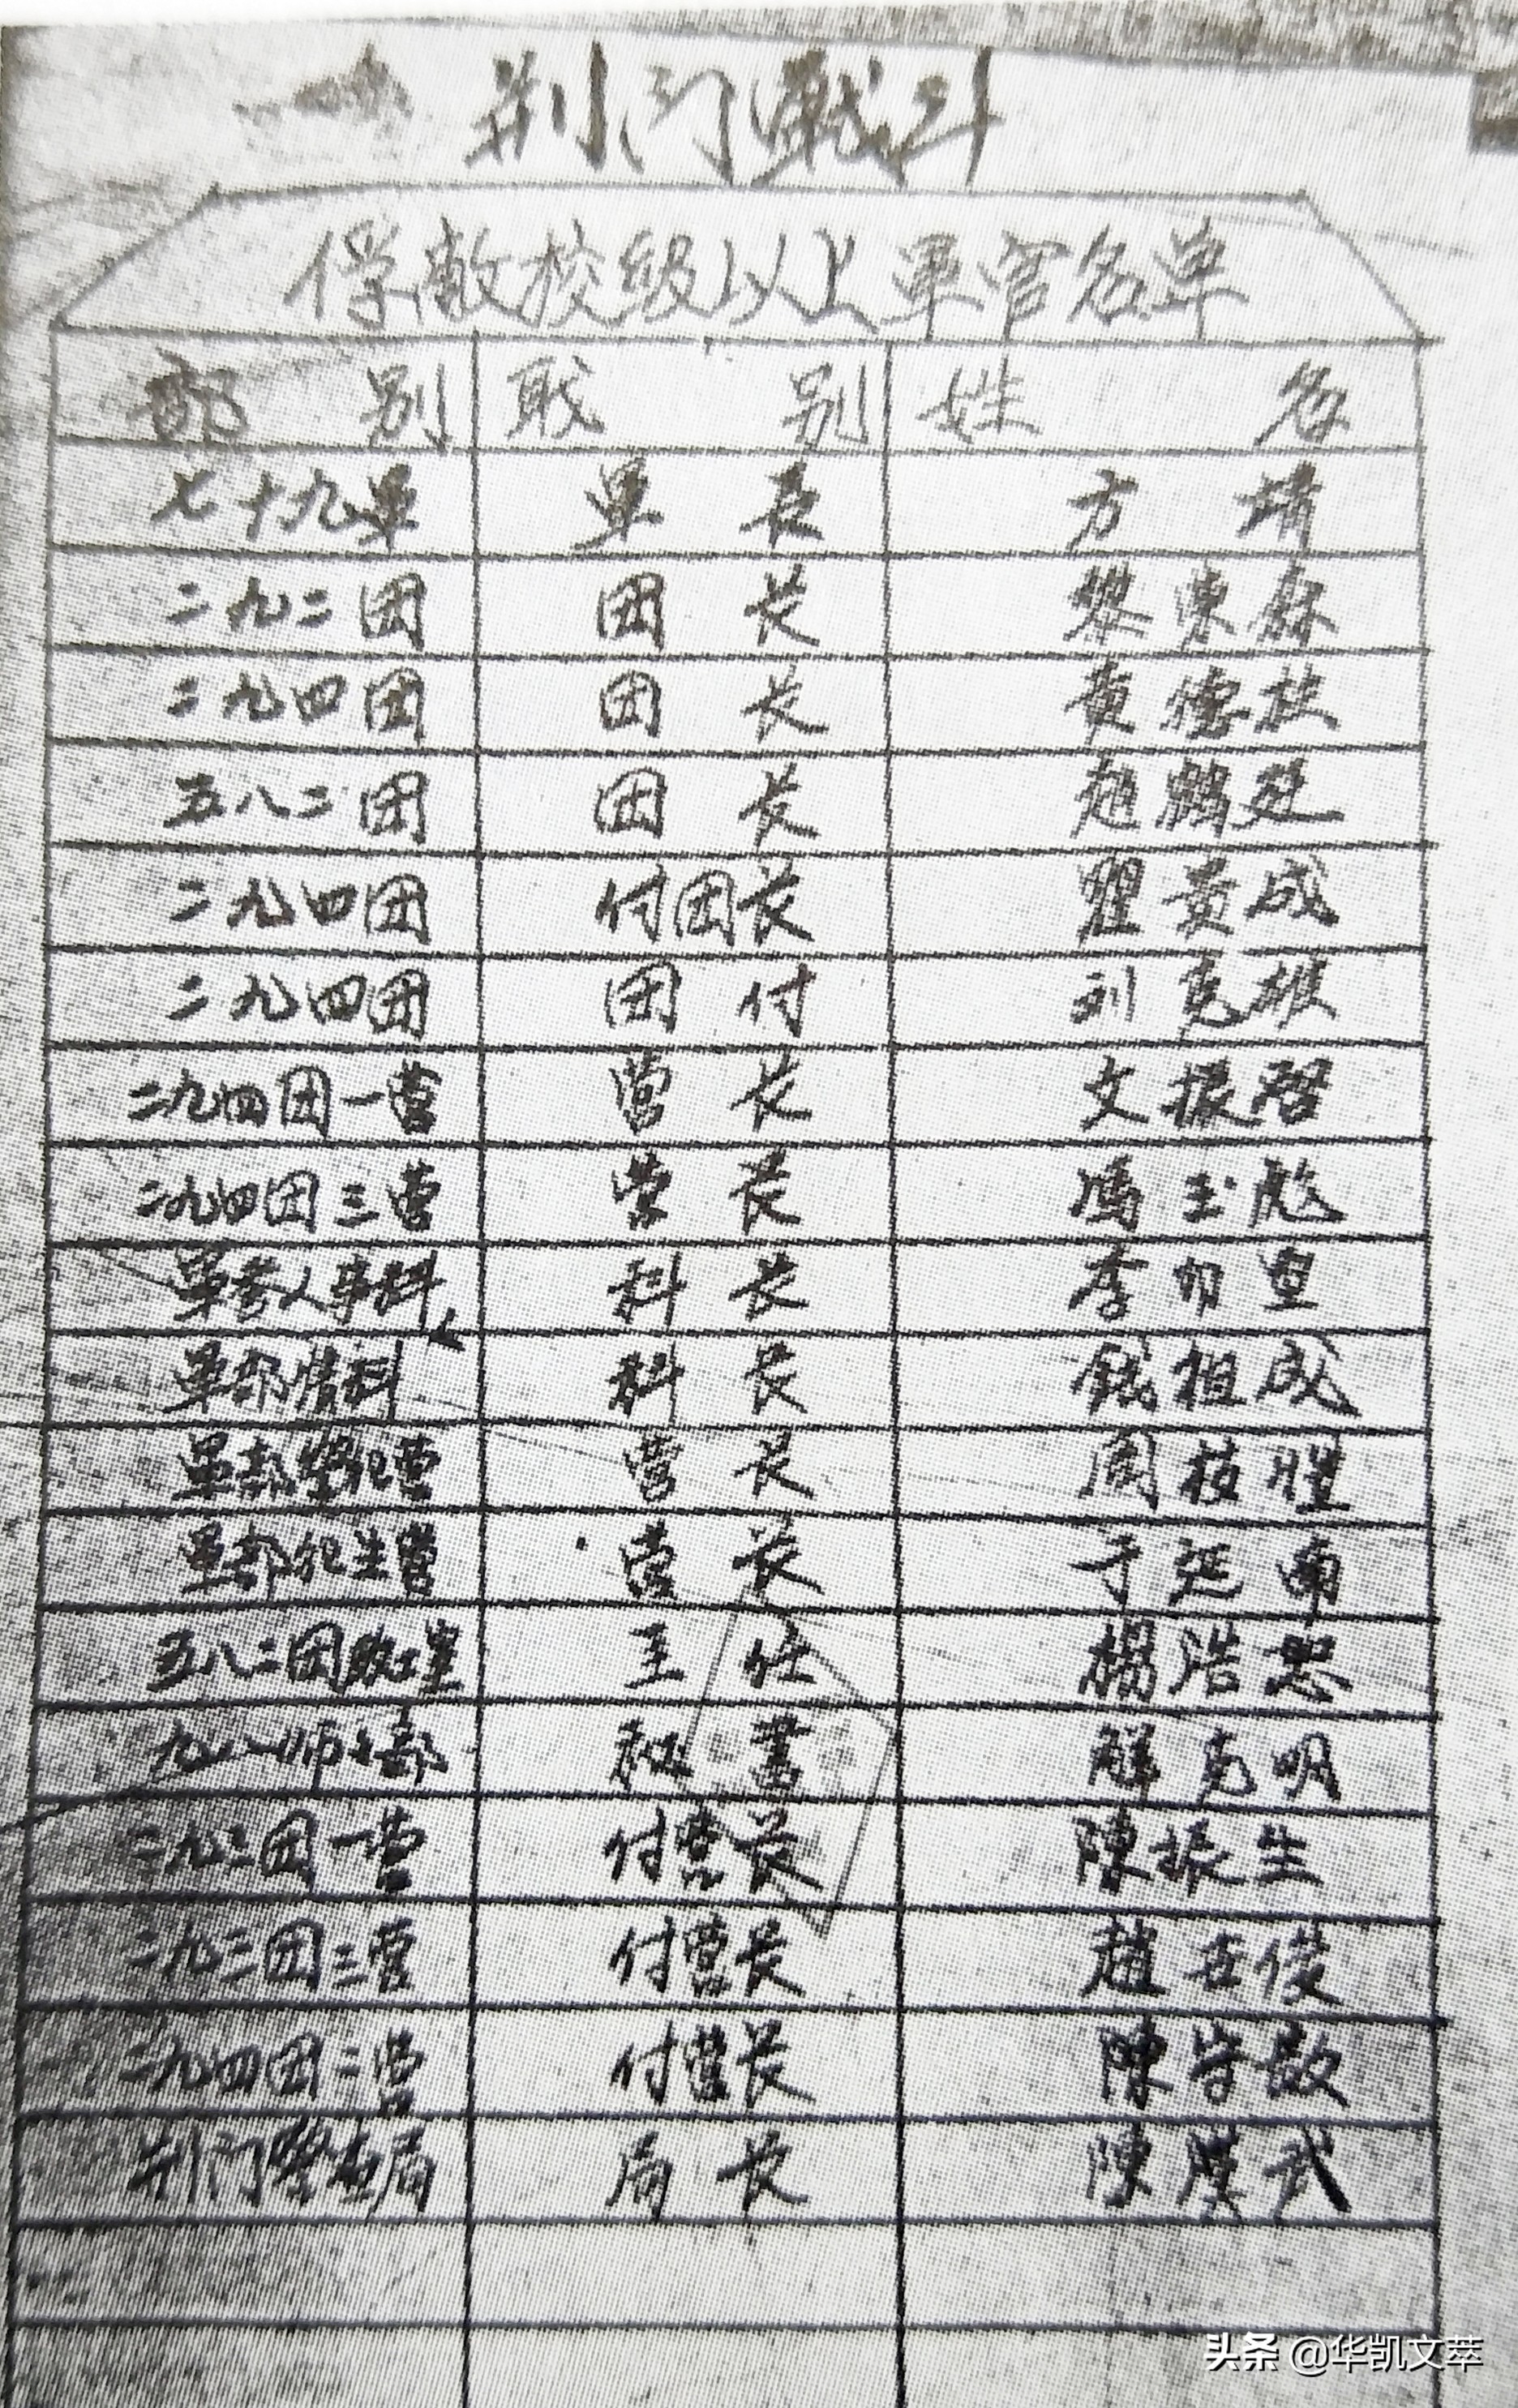 荆门戰斗
俘敵校级以上軍官名单
部别 职别 姓名
七十九軍 軍長 方靖
二九二团 团长 黎東
二九四团 团长 黄德
五八二团 团长 趙鶴
二九四团 付团长 瞿黄成
二九四团 团付 刘克雄
二九四团一营 营长 文振启
二九四团三营 营长 馮玉彪
軍参人事科 科长 李
軍部情科 科长 钱祖成
軍部 营 营长 周枝
軍部 营 营长 于延南
五八二团 室 主任 楊浩恕
九八师司部 秘書 解克明
二九二团一营 付营长 陳振生
二九三团三营 付营长 趙 俊
二九四团二营 付营长 陳守
荆门警 局 局长 陳漢武
头条 @华凯文萃